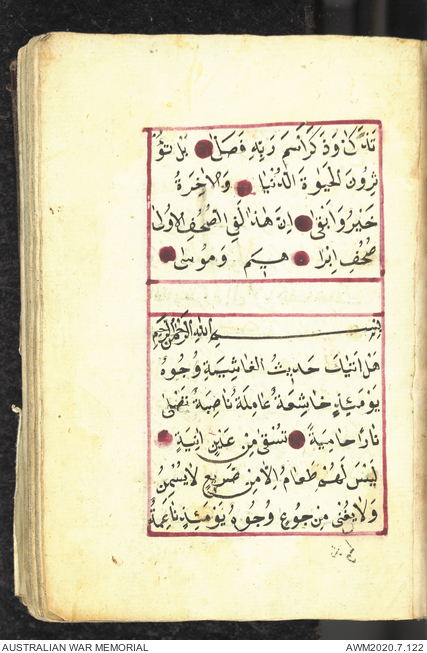 تَزَكّٰى وَذَكَرَ اسْمَ رَبِّهِ فَصَلّٰى بَلْ تُؤْ
ثِرُونَ الْحَيٰوةَ الدُّنْيَا وَالْاٰخِرَةُ
خَيْرٌ وَاَبْقٰى اِنَّ هٰذَا لَفِي الصُّحُفِ الْاُولٰى
صُحُفِ اِبْرٰا هِيمَ وَمُوسٰى
بِسْمِ اللّٰهِ الرَّحْمٰنِ الرَّحِيمِ
هَلْ اَتٰيكَ حَدِيثُ الْغَاشِيَةِ وُجُوهٌ
يَوْمَئِذٍ خَاشِعَةٌ عَامِلَةٌ نَاصِبَةٌ تَصْلٰى
نَارًا حَامِيَةً تُسْقٰى مِنْ عَيْنٍ اٰنِيَةٍ
لَيْسَ لَهُمْ طَعَامٌ اِلَّا مِنْ ضَرِيعٍ لَا يُسْمِنُ
وَلَا يُغْنِى مِنْ جُوعٍ وُجُوهٌ يَوْمَئِذٍ نَاعِمَةٌ
AUSTRALIAN WAR MEMORIAL AWM2020.7.122